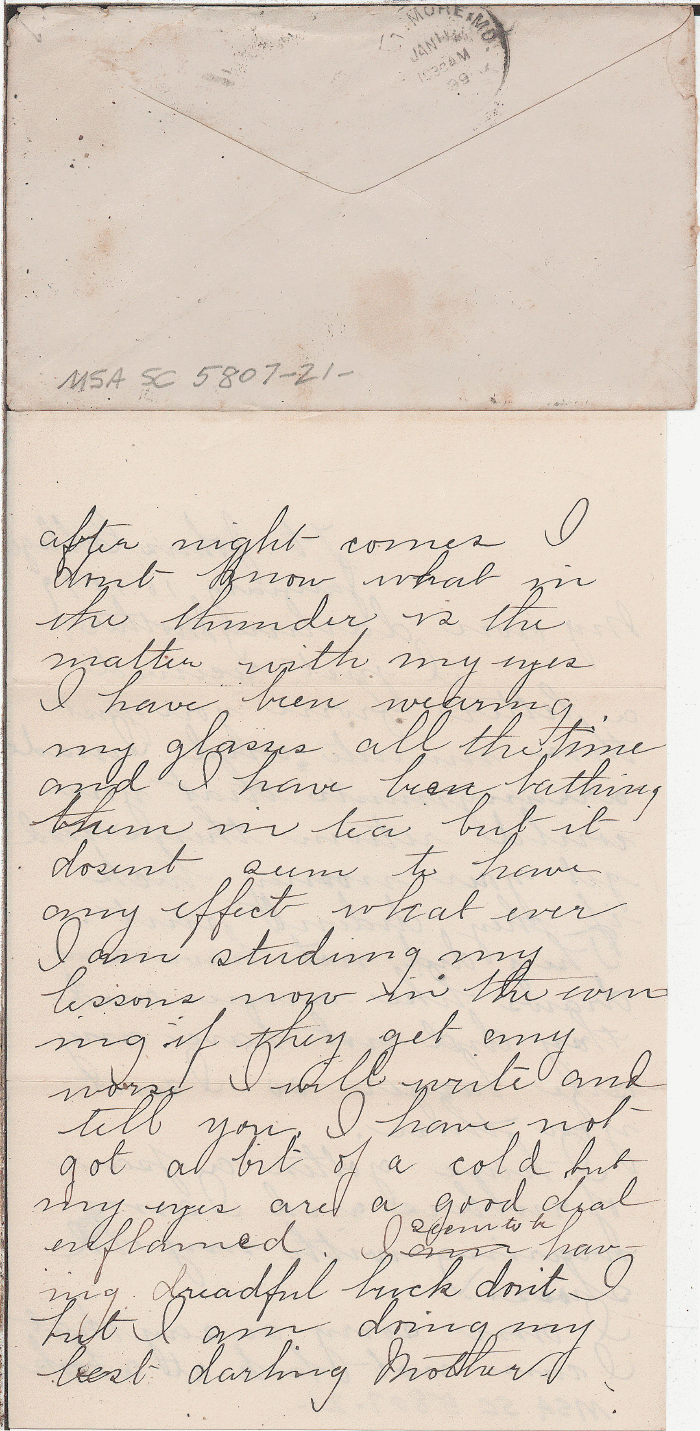 MORE, MD.
JAN 11
10 30 AM
99
MSA SC 5807-21-
after night comes I
dont know what in
the thunder is the
matter with my eyes
I have been wearing
my glasses all the time
and I have been bathing
them in tea but it
dosent seem to have
any effect what ever
I am studing my
lessons now in the even
ing if they get any
worse I will write and
tell you. I have not
got a bit of a cold but
my eyes are a good deal
enflamed. I am seem to be hav-
ing dreadful luck don't I
but I am doing my
best darling Mother.